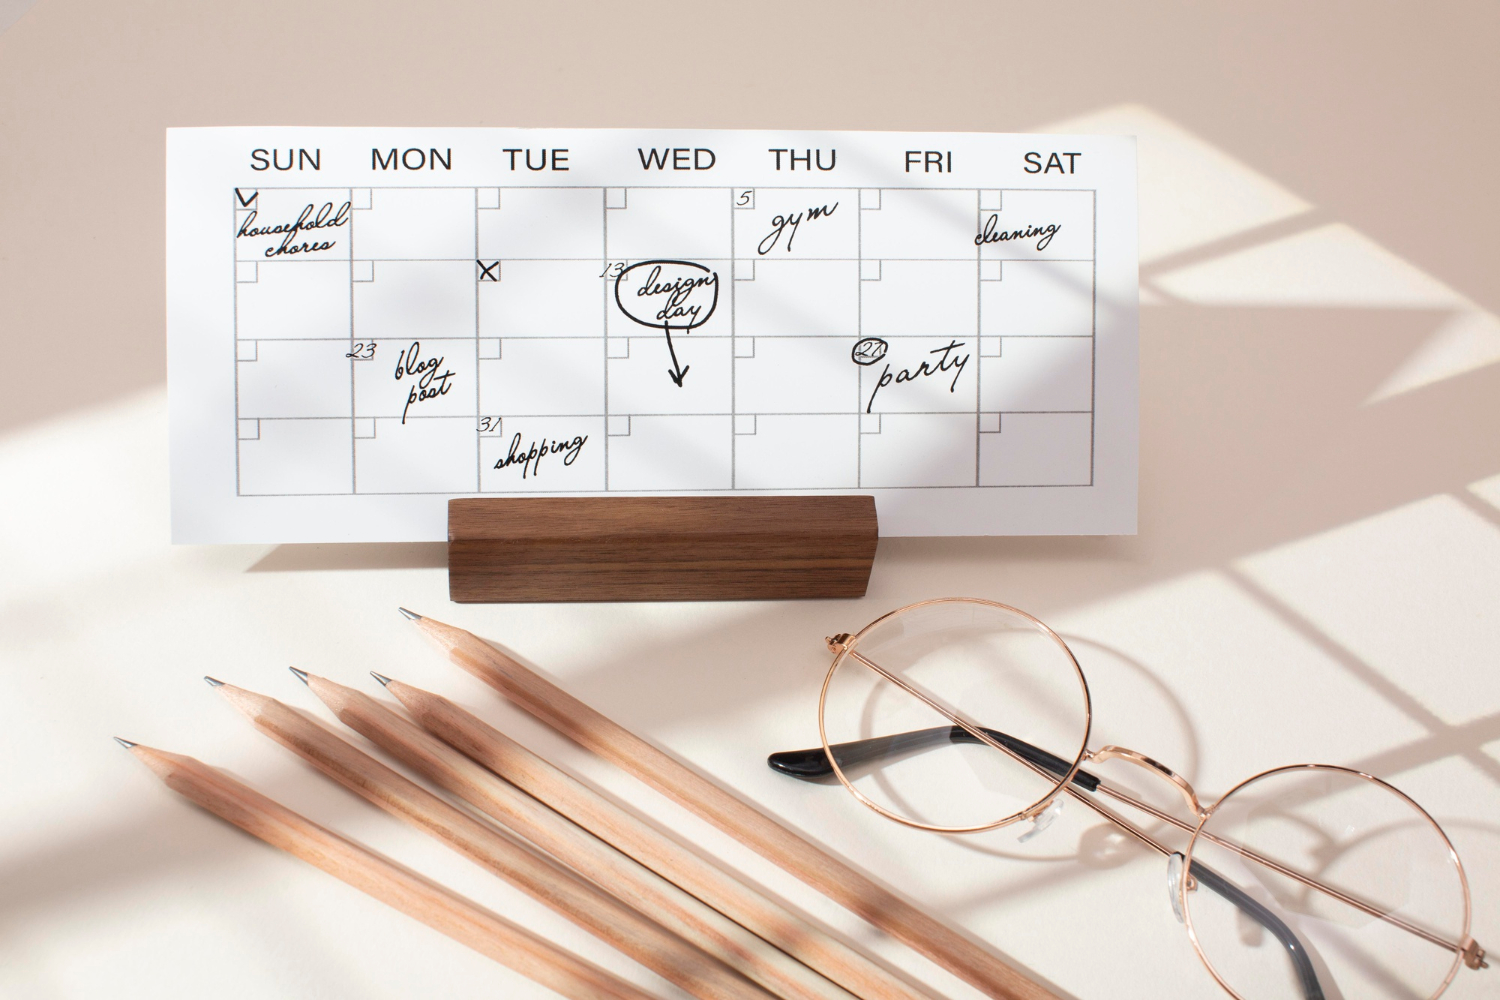 SUN MON TUE WED THU FRI SAT
5
household
chores
gym
cleaning
13
design
day
23
blog
post
27
party
31
shopping